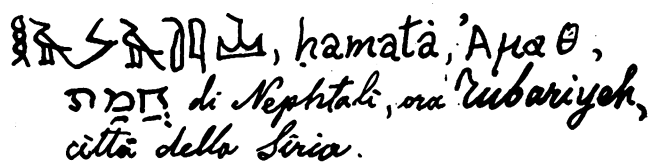 , ḥamatà, Ἀμαθ,
חֲמַת di Nephtali, ora Rubariyeh,
città della Siria.